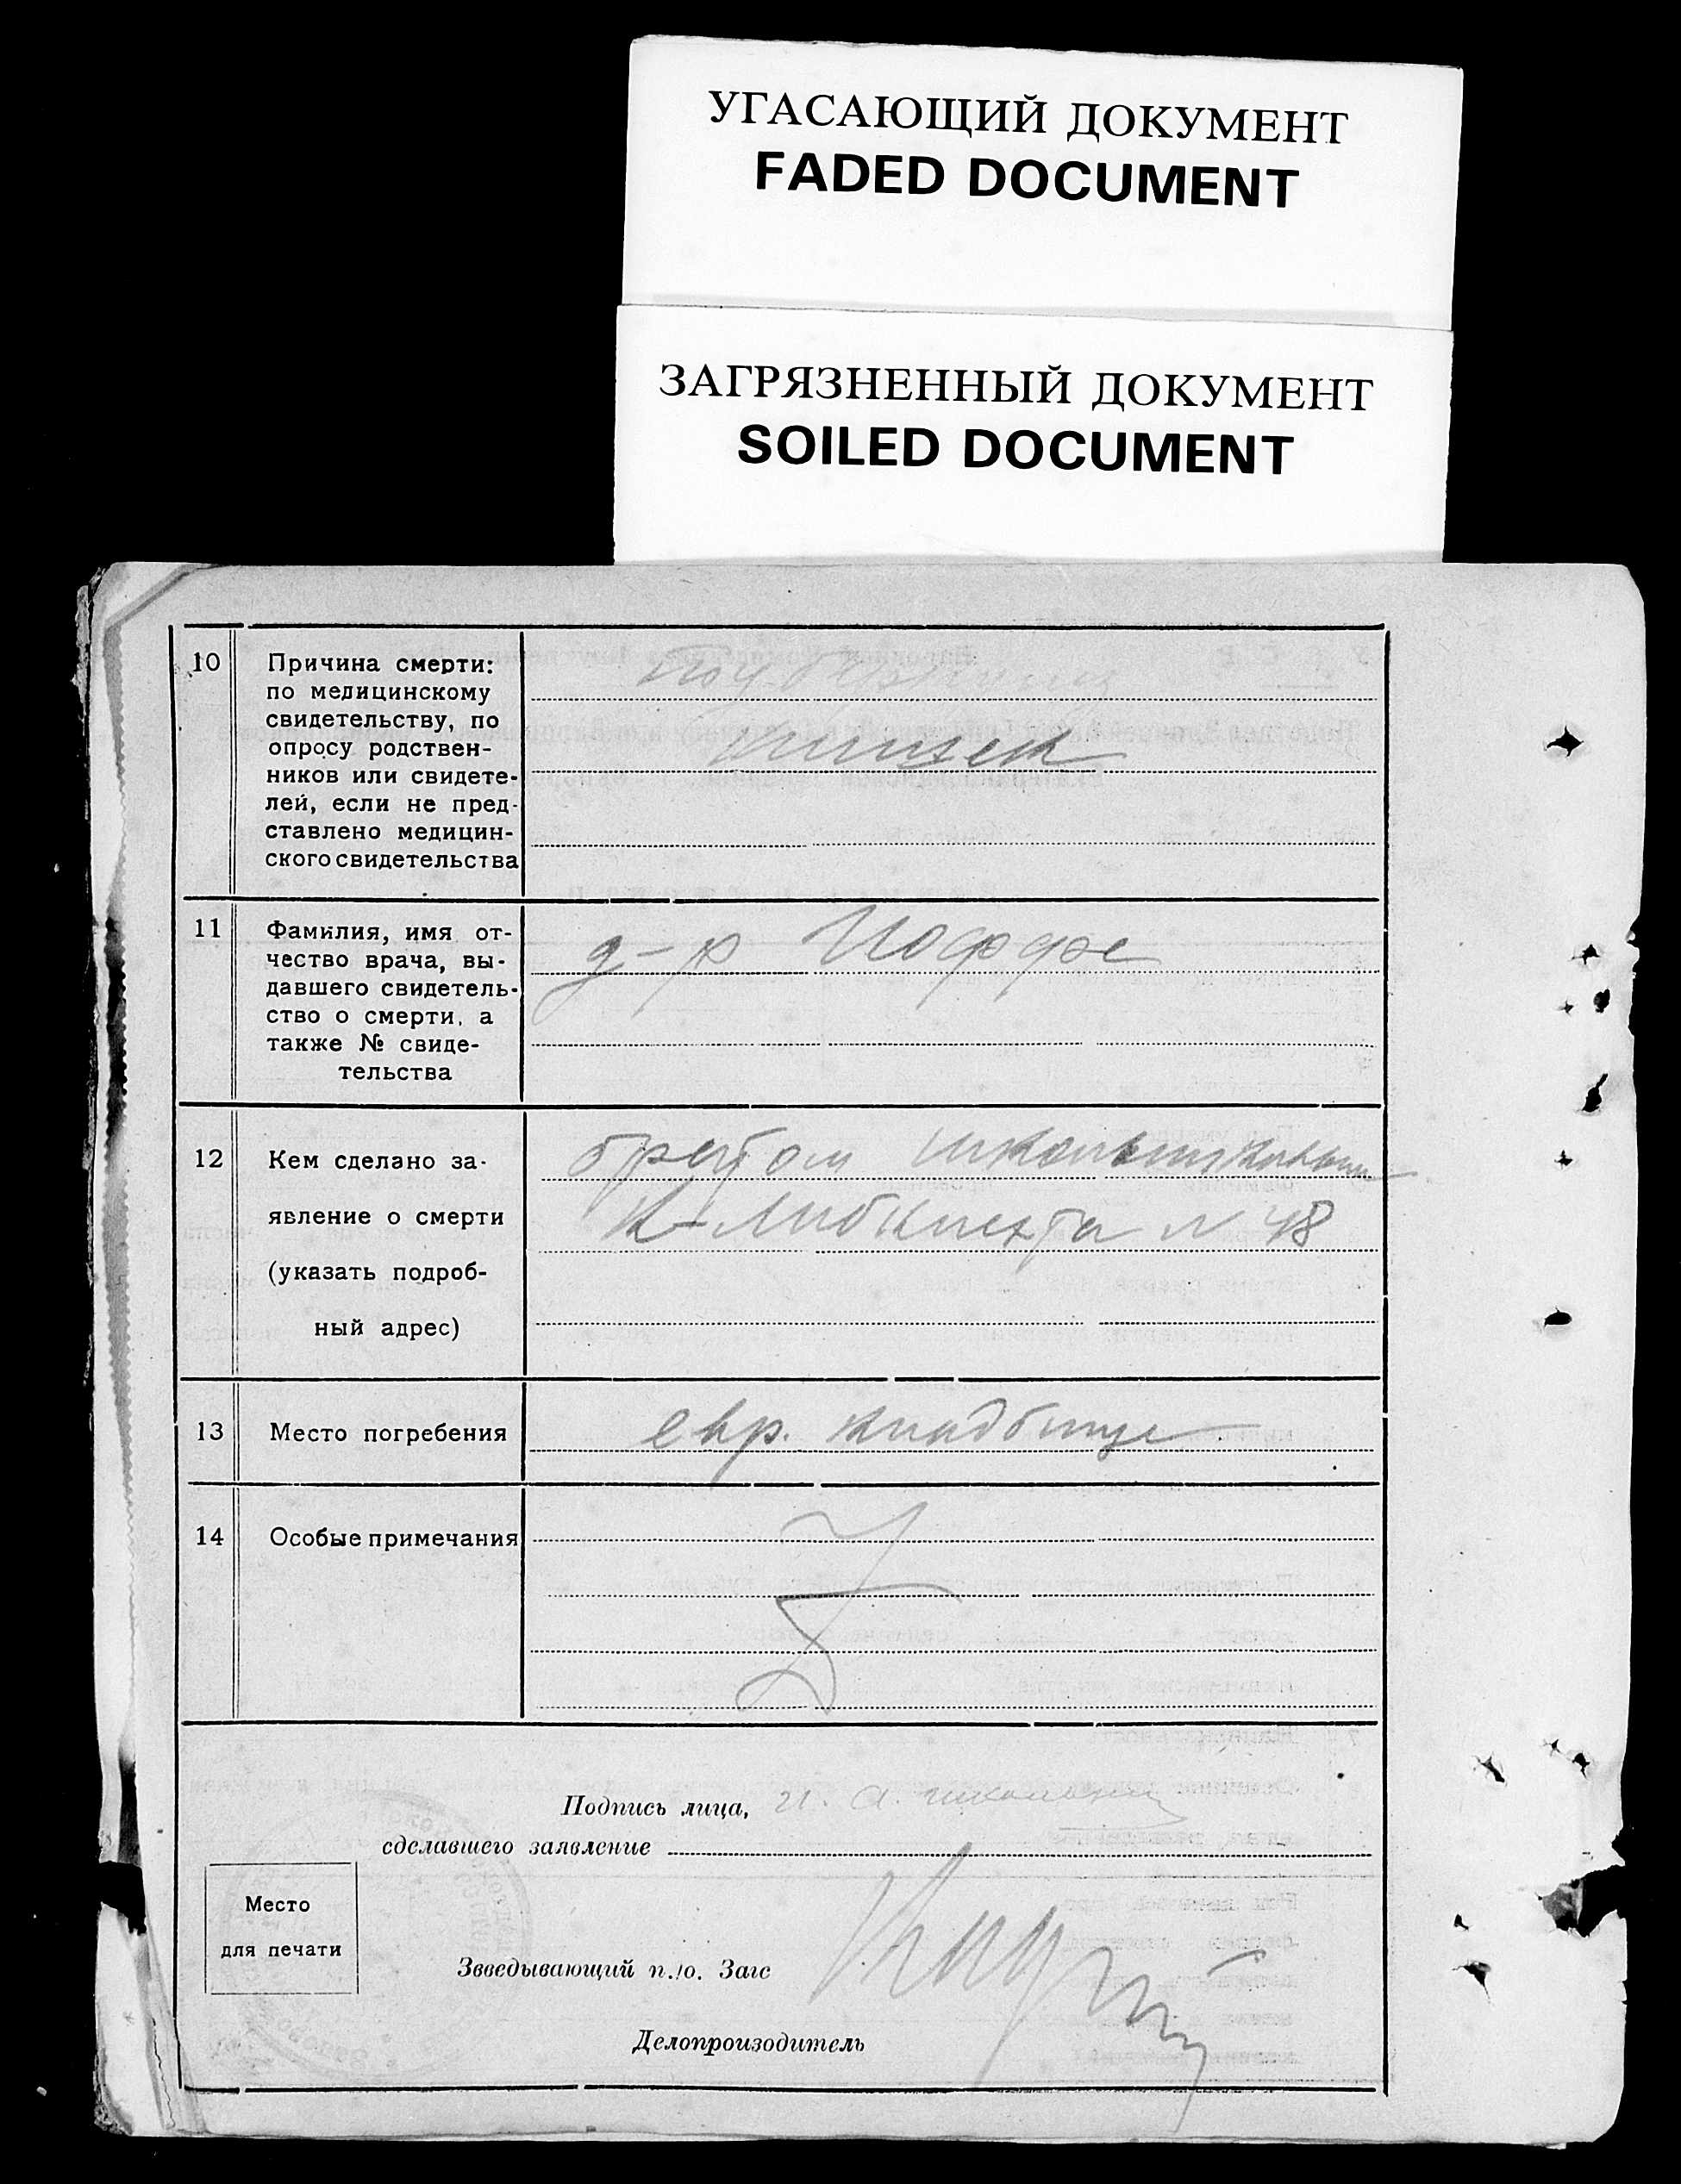 УГАСАЮЩИЙ ДОКУМЕНТ
FADED DOCUMENT
ЗАГРЯЗНЕННЫЙ ДОКУМЕНТ
SOILED DOCUMENT
10 Причина смерти:
по медицинскому
свидетельству, по
опросу родствен-
ников или свидете-
лей, если не пред-
ставлено медицин-
ского свидетельства
кишек
11 Фамилия, имя от-
чество врача, вы-
давшего свидетель-
ство о смерти, а
также № свиде-
тельства
д-р Иоффе
12 Кем сделано за-
явление о смерти
(указать подроб-
ный адрес)
братом Школьниковым
К-Либкнехта N 48
13 Место погребения
евр. кладбище
14 Особые примечания
Подпись лица,
сделавшего заявление
И. А.
Место
для печати
Зведывающий п./о. Загс
Делопроизодитель